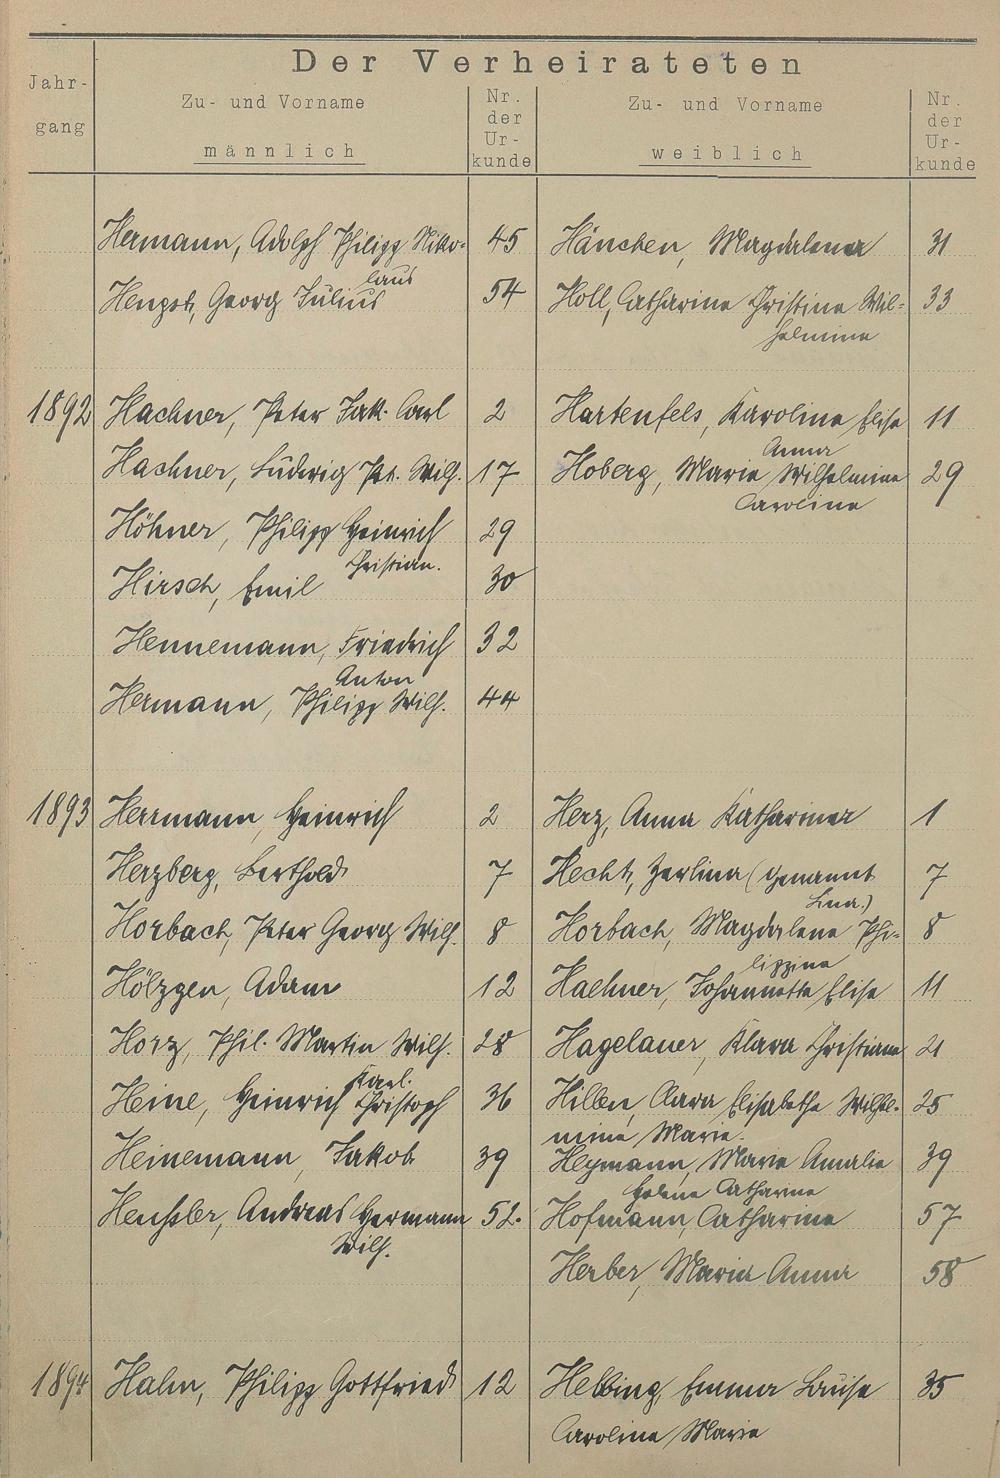 Der Verheirateten
Jahr-
gang
Zu- und Vorname
männlich
Nr.
der
Ur-
kunde
Zu- und Vorname
weiblich
Nr.
der
Ur-
kunde
Hermann, Adolph Philipp Niko- 45 Hänchen, Magdalena 31
laus
Hengst, Georg Julius 54 Holl, Catharina Christine Wil- 33
helmine
1892 Hachner, Peter Jak. Carl 2 Hartenfels, Karolina Elise 11
Anna
Hachner, Ludwig Pet. Wilh. 17 Hoberg, Maria Wilhelmine 29
Carolina
Höhner, Philipp Heinrich 29
Christian.
Hirsch, Emil 30
Hennemann, Friedrich 32
Anton
Hermann, Philipp Wilh. 44
1893 Herrmann, Heinrich 2 Herz, Anna Katharina 1
Herzberg, Berthold 7 Hecht, Zerlina (genannt 7
Lina.)
Horbach, Peter Georg Wilh. 8 Horbach, Magdalena Phi- 8
lippina
Hölzgen, Adam 12 Haehner, Johannette Elise 11
Horz, Phil. Martin Wilh. 28 Hagelauer, Klara Christiane 21
Karl.
Heine, Heinrich Christoph 36 Hillen, Clara Elisabetha Wilhel- 25
mine Marie.
Heinemann, Jakob 39 Heymann, Maria Amalie 39
Helene Catharina
Heußler, Andreas Hermann 52. Hofmann, Catharina 57
Wilh.
Herber, Maria Anna 58
1894 Hahn, Philipp Gottfried 12 Helbing, Emma Louise 35
Carolina Marie